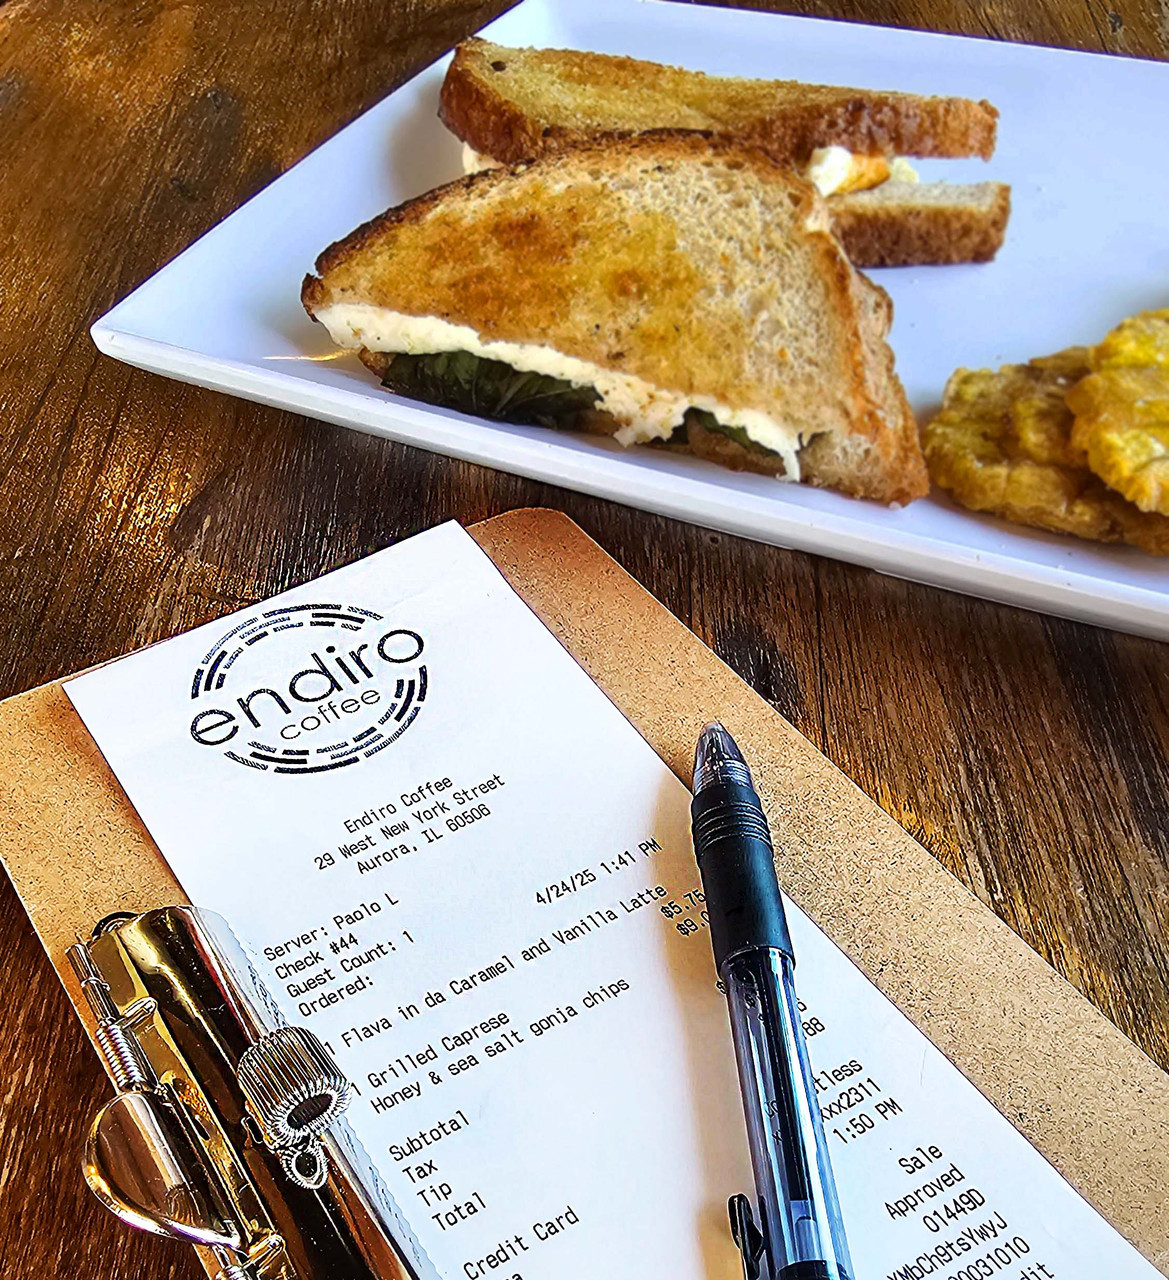 endiro
coffee
Endiro Coffee
29 West New York Street
Aurora, IL 60506
Server: Paolo L
Check #44
4/24/25 1:41 PM
Guest Count: 1
Ordered:
1 Flava in da Caramel and Vanilla Latte $5.75
1 Grilled Caprese
Honey & sea salt gonja chips
Subtotal
Tax
Tip
Total
88
Credit Card
xxx2311
1:50 PM
Sale
Approved
01449D